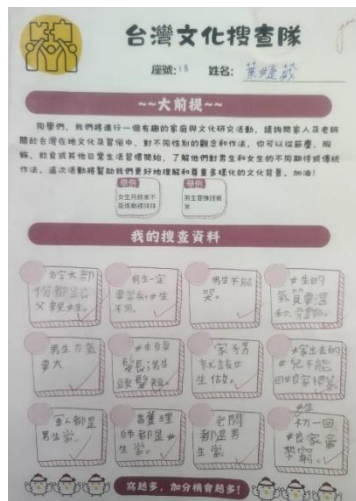 台灣文化搜查隊
座號:18 姓名:葉
~~大前提~~
同學們，我們將進行一個有趣的家庭與文化研究活動，請詢問家人及老師
關於台灣在地文化及習俗中，對不同性別的觀念和作法。你可以從節慶、服
飾、飲食或其他日常生活習慣開始，了解他們對男生和女生的不同期待或傳統
作法。這次活動將幫助我們更好地理解和尊重多樣化的文化背景。加油！
舉例
舉例
女生月經來不
能拿香拜拜
男生要賺錢養
家
我的搜查資料
名字大部
份都跟
父親姓。
男生一定
要當兵，女生
不用。
男生不能
哭。
女生的
氣質要溫
和、
男生力氣
要大
女生頭
髮長，男生
頭髮短。
家務
就該女
生做。
嫁出去的
女兒不能
回娘家掃墓
軍人都是
男生當。
護理
師都是女
生當。
老闆
都是男
生當。
女生
初一回
娘家會
帶窮。
寫越多，加分機會越多！